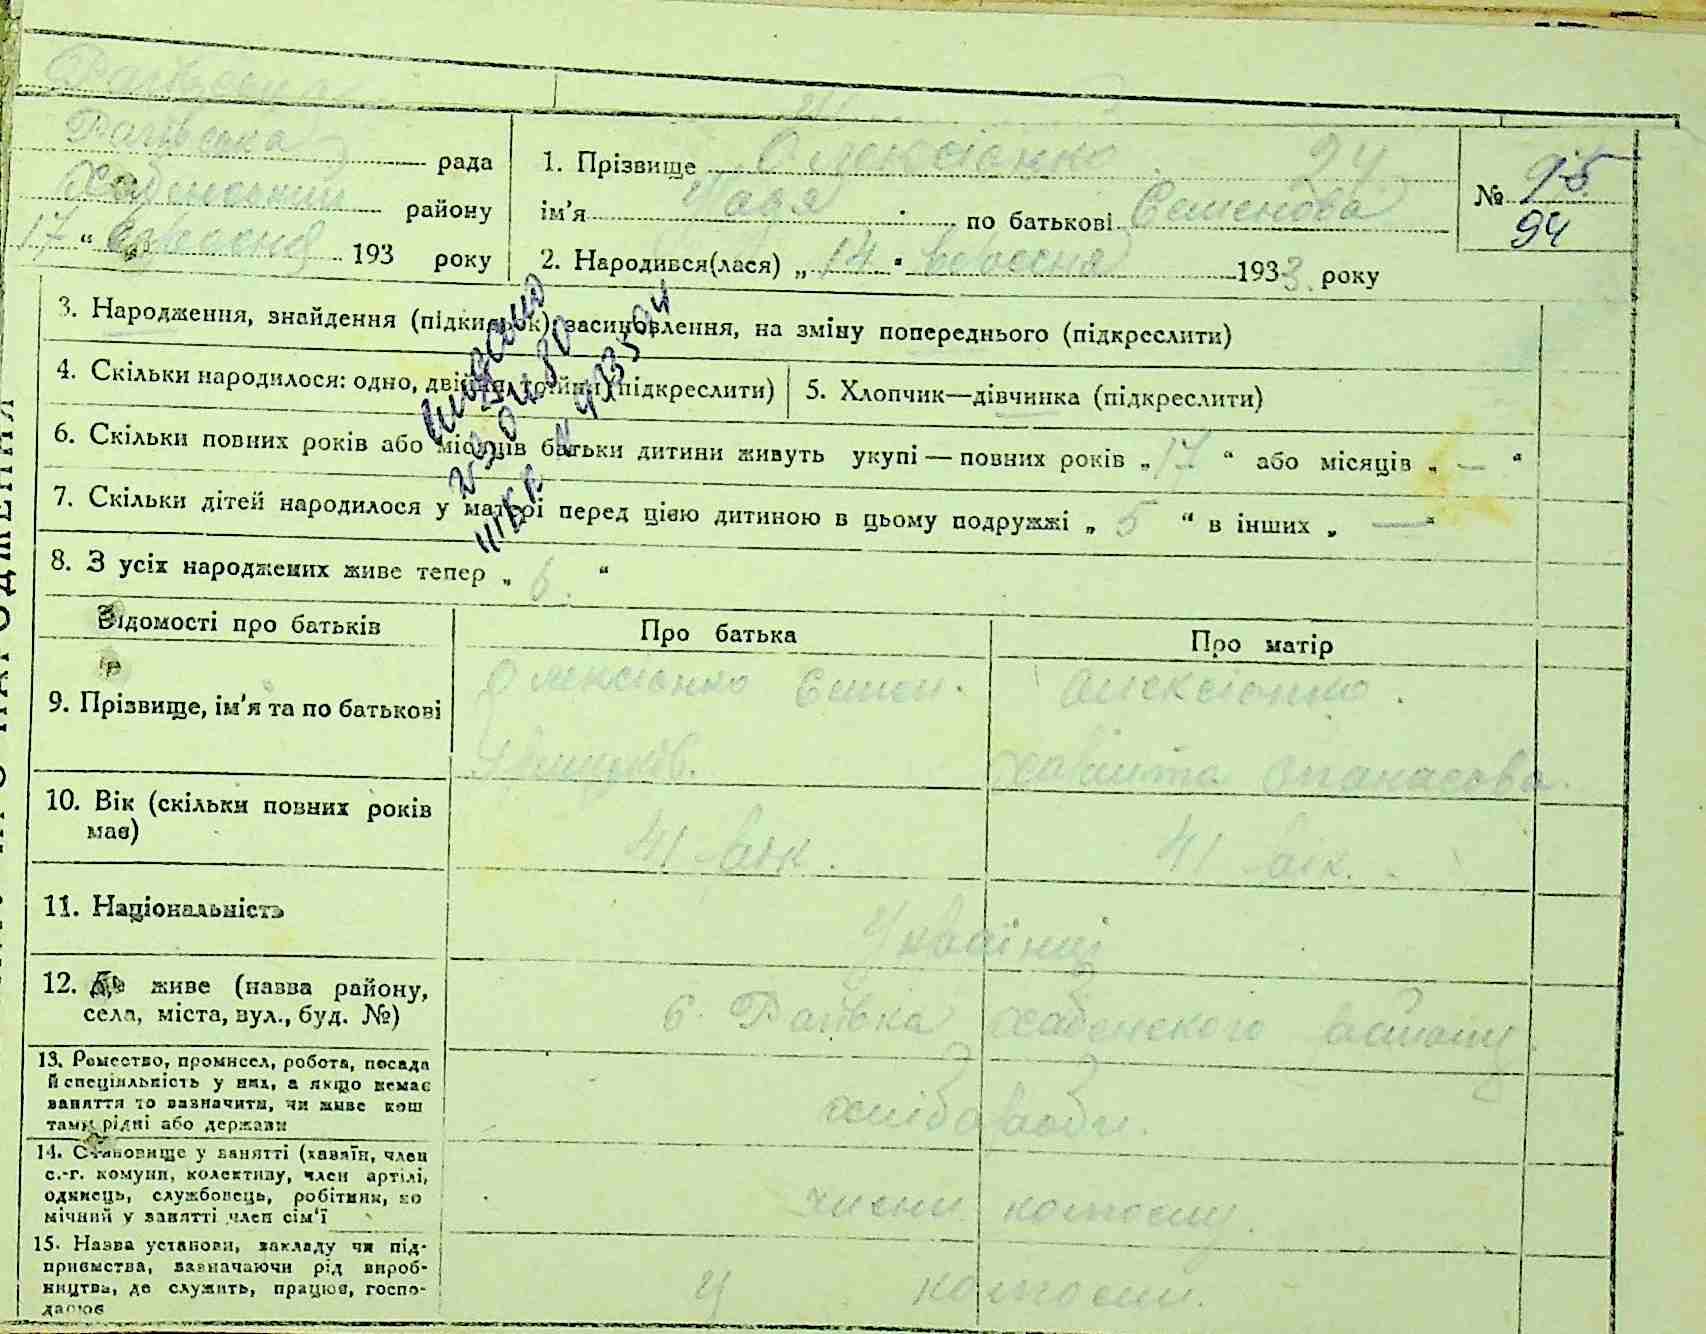 Рагівська рада
Хабенський району
17 " вересня 193 року
1. Прізвище Олексієнко 24
ім'я Надя по батькові Семенова
2. Народився(лася) „ 14 " вересня 1933 року
№ 95
94
3. Народження, знайдення (підкидьок), засиновлення, на зміну попереднього (підкреслити)
4. Скільки народилося: одно, двійня, трійня (підкреслити)
5. Хлопчик—дівчинка (підкреслити)
6. Скільки повних років або місяців батьки дитини живуть укупі — повних років „ 17 " або місяців „ — "
7. Скільки дітей народилося у матері перед цією дитиною в цьому подружжі „ 5 " в інших „ — "
8. З усіх народжених живе тепер „ 6 "
Відомості про батьків
Про батька
Про матір
9. Прізвище, ім'я та по батькові
Олексієнко Семен
Олексієнко
Опанасова
10. Вік (скільки повних років
має)
41 рік.
41 рік.
11. Національність
Українці
12. Де живе (назва району,
села, міста, вул., буд. №)
с. Рагівка Хабенского району
13. Ремество, промисел, робота, посада
й спеціяльність у них, а якщо немає
заняття то зазначити, чи живе кош
тами рідні або держави
хлібороби.
14. Становище у занятті (хазяїн, член
с.-г. комуни, колективу, член артілі,
одинець, службовець, робітник, по
мічний у занятті член сім'ї
члени колгоспу.
15. Назва установи, закладу чи під-
приємства, зазначаючи рід вироб-
ництва, де служить, працює, госпо-
дарює
У колгоспі.